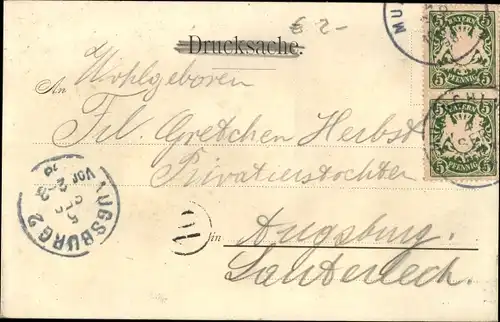 € 2-
Drucksache
An Wohlgeboren
Frl. Gretchen Herbst
Privatierstochter
in Augsburg.
Lauterlech.
10
AUGSBURG 2
5
SEP
Vor. 2-3
MU
BAYERN
5 5
PFENNIG
BAYERN
5 5
PFENNIG
4
SEP